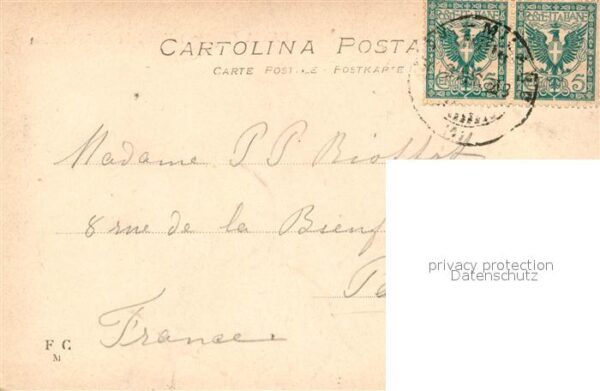 CARTOLINA POSTA
CARTE POSTALE - POSTKARTE
POSTE ITALIANE
POSTE ITALIANE
5
5
MILANO
Madame P P
8 rue de la Bienf
France
privacy protection
Datenschutz
F C
M